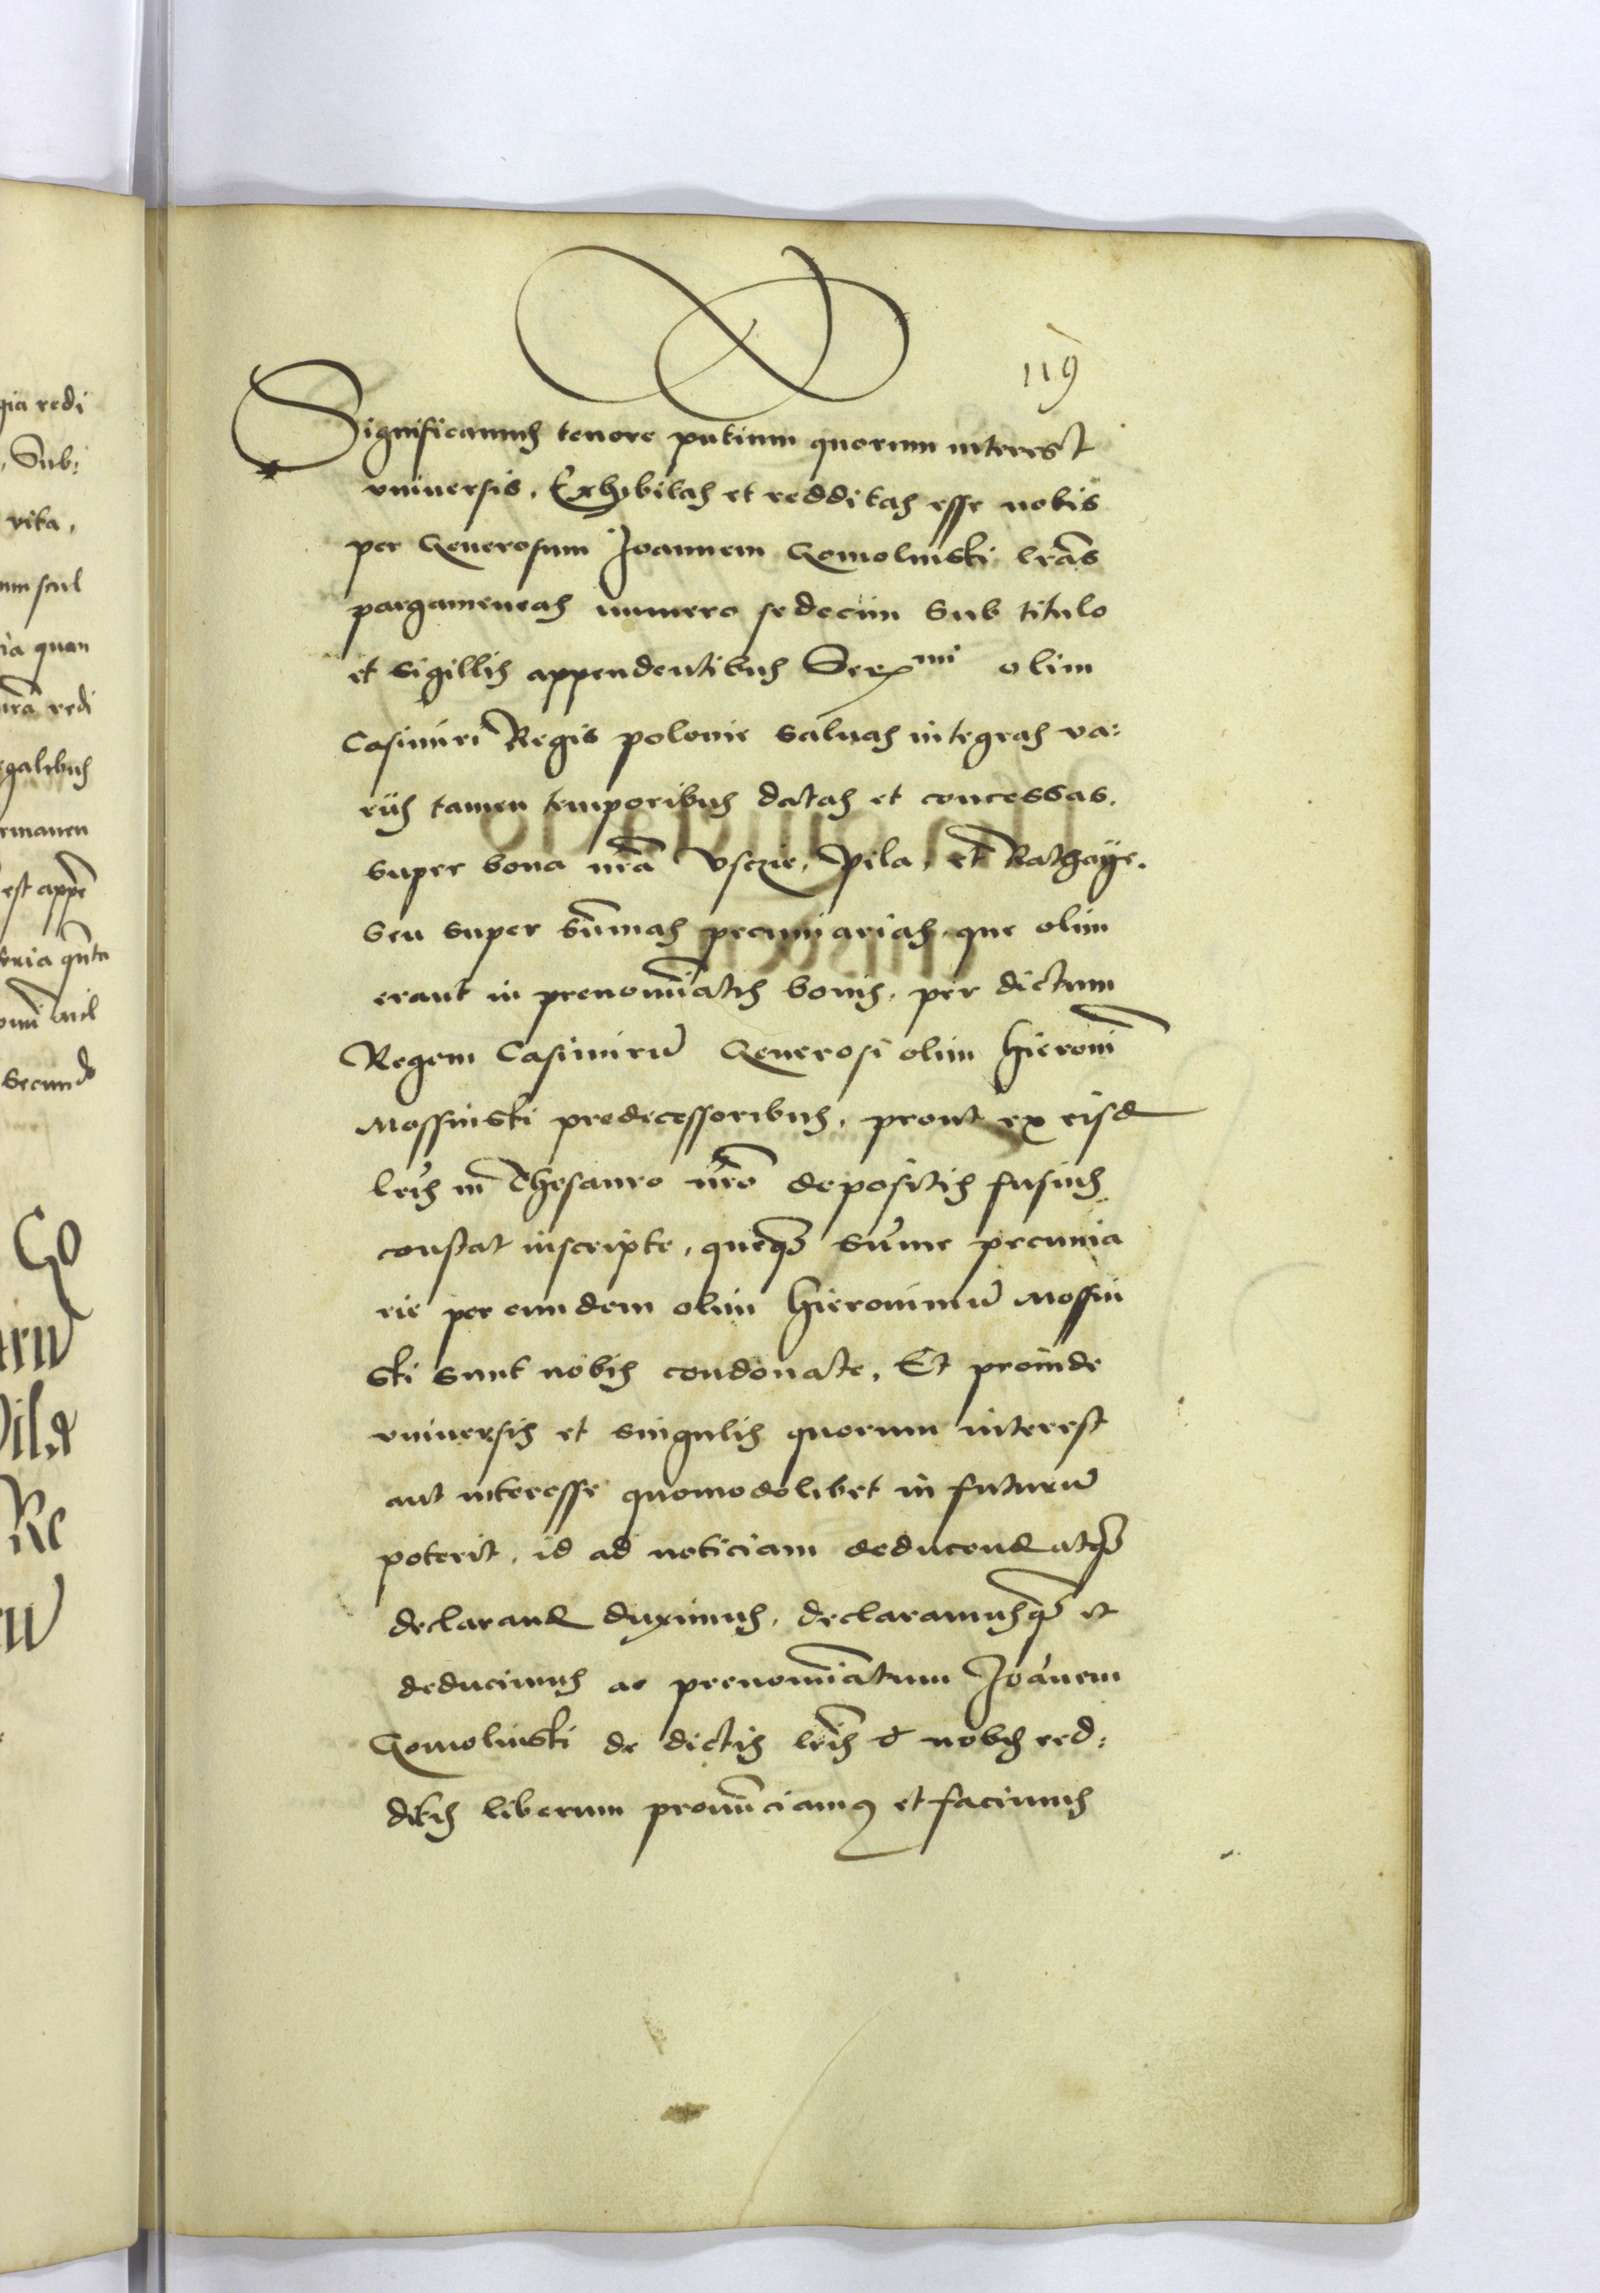 119
Significamus tenore pntium quorum interest
vniuersis, Exhibitas et redditas esse nobis
per Generosum Joannem Gomolinski lrãs
pargameneas numero sedecim sub titulo
et sigillis appendentibus Ser^mi olim
Casimiri Regis polonie saluas integras va:
rijs tamen temporibus datas et concessas.
super bona nrã Vsczie, Pila, et
seu super sũmas pecuniarias que olim
erant in prenomĩatis bonis, per dictum
Regem Casimirũ Generosi olim Hieronĩ
Mossinski predecessoribus, prout ex eisd
lrĩs in Thesauro nrõ depositis fusius
constat inscripte, queqз sũme pecunia
rie per eundem olim Hieronimũ Mossin
ski sunt nobis condonate, Et proinde
vniuersis et singulis quorum interest
aut interesse quomodolibet in futurũ
poterit, id ad noticiam deducend atqз
declarand duximus, declaramusqз et
deducimus ac prenomĩatum Joãnem
Gomolinski de dictis lrĩs et nobis red:
ditis liberum pronũciamus et facimus
gia redi
, Sub:
vita,
ia quan
urã redi
egalibus
rmanen
est appẽ
secundo
Go
Pila
Re